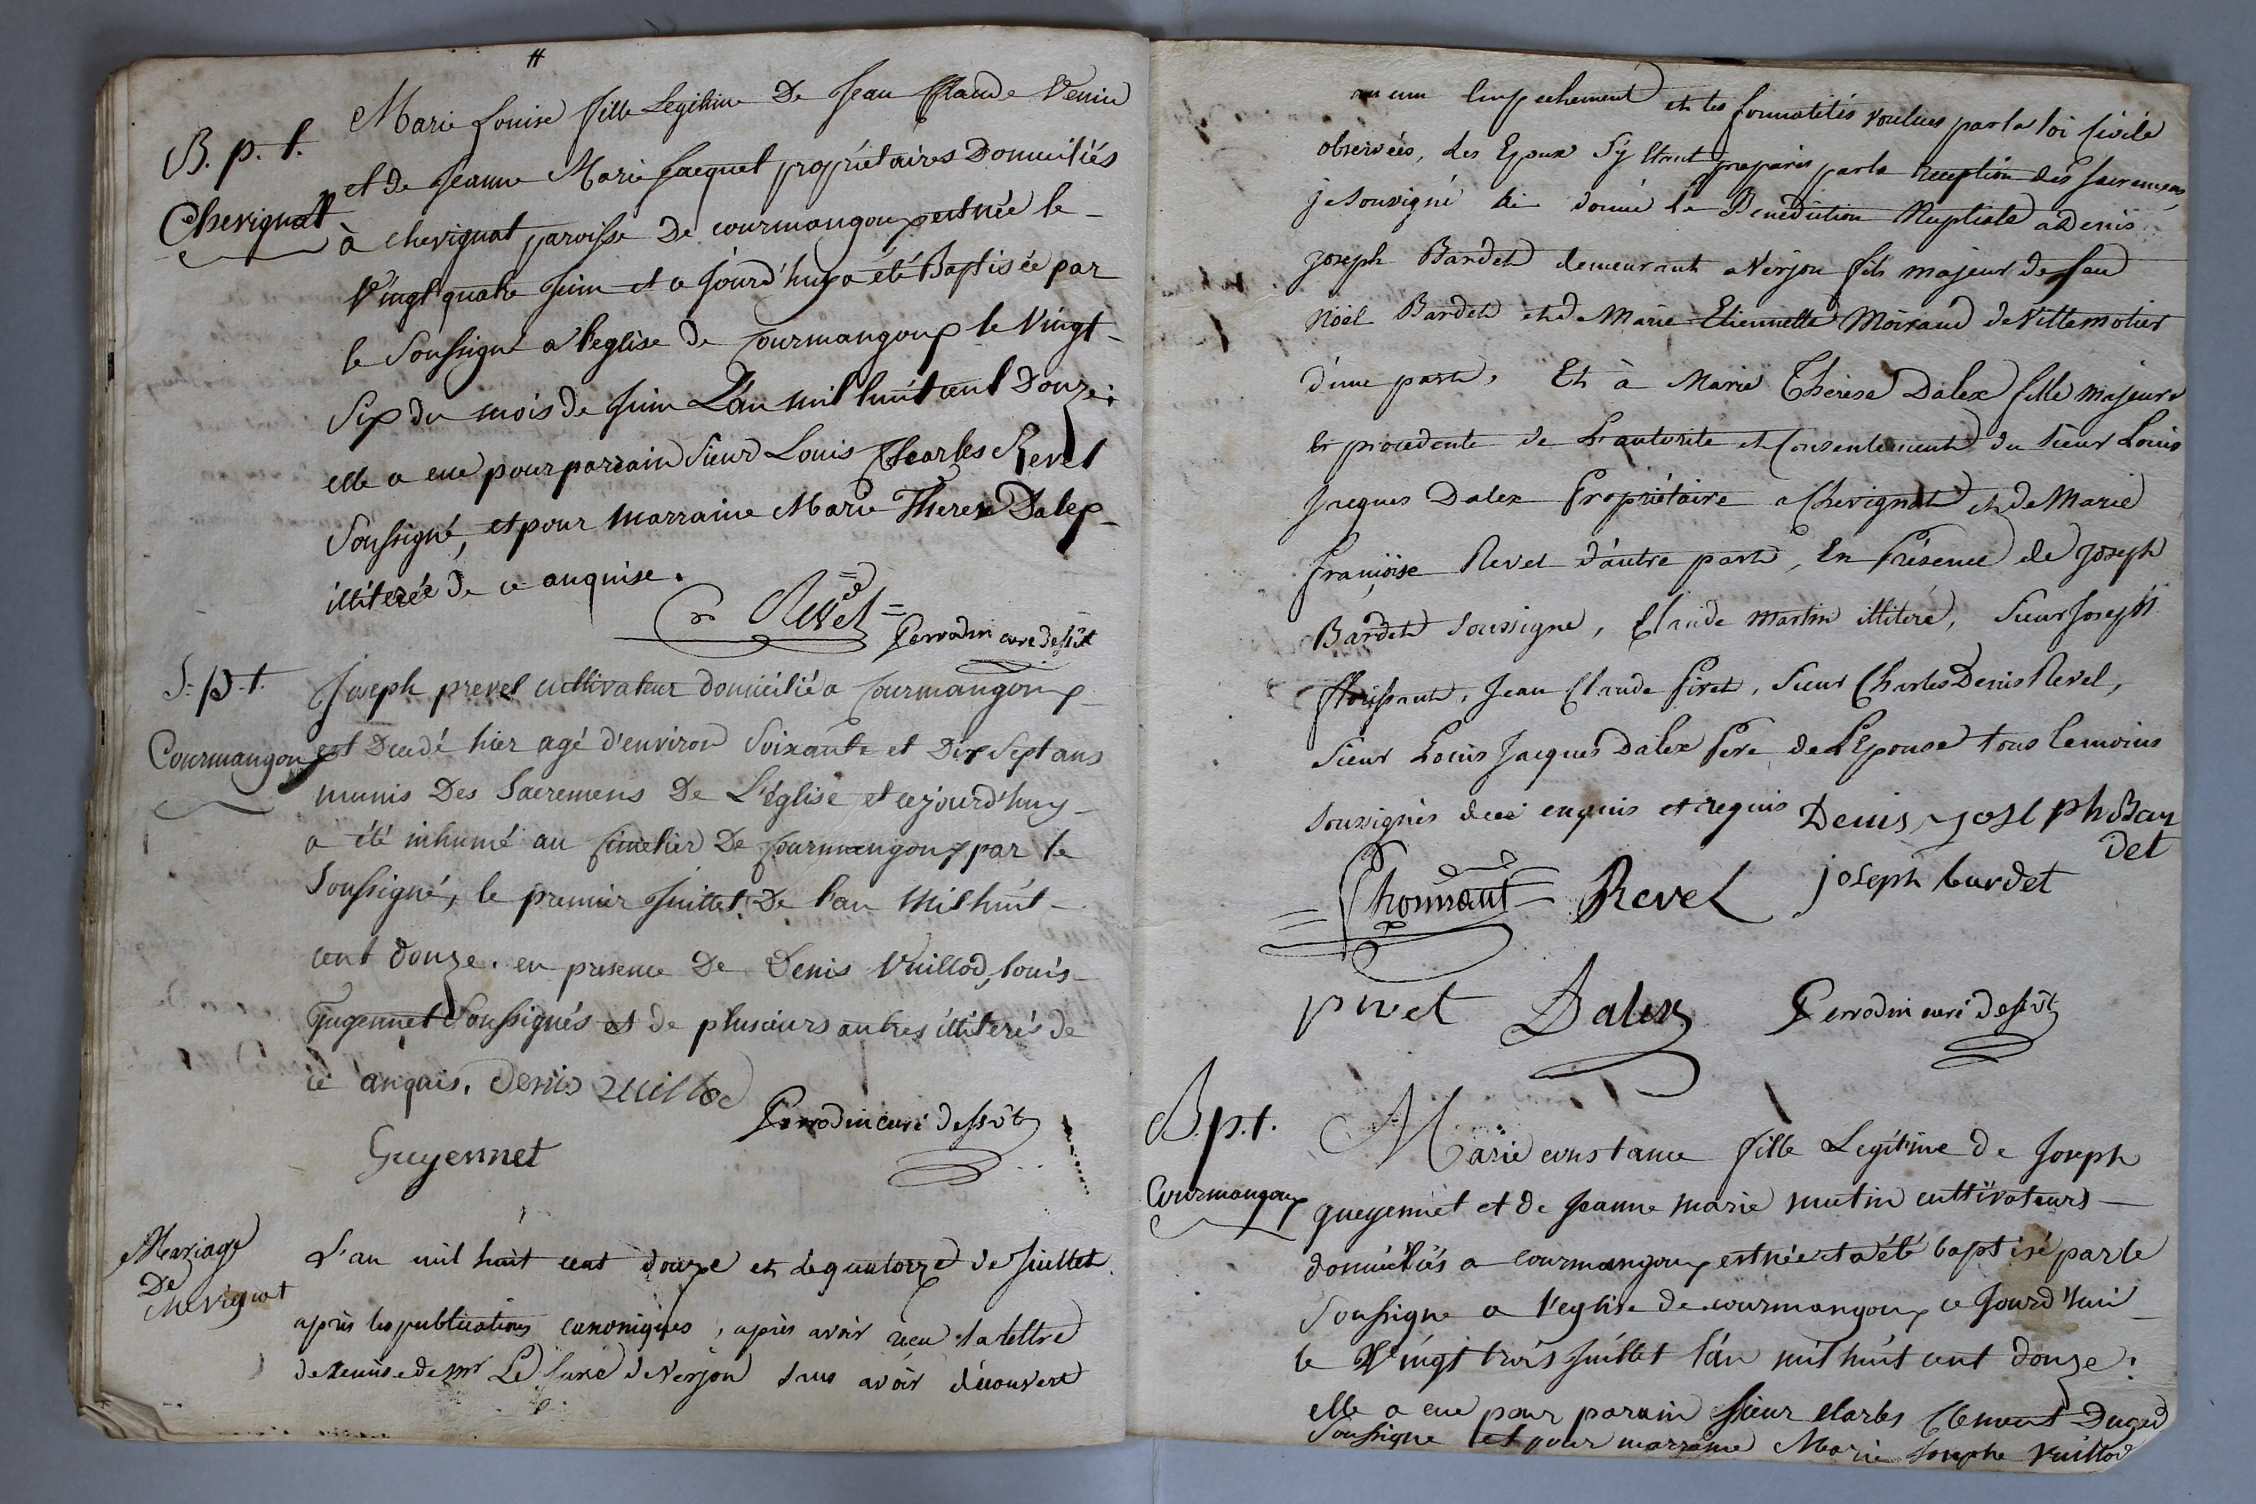 B. p. t.
Chevignat
Marie Louise fille Legitime De Jean Claude Venin
et de Jeanne Marie Jacquet propriétaires Domiciliés
à chevignat paroisse De courmangoux est née le
Vingt quatre Juin et ce Jourd'huy a été Baptisée par
le Soussigné a l'eglise de Courmangoux le Vingt-
Six du mois de Juin L'an mil huit cent Douze:
elle a eue pour parrain Sieur Louis Charles Revel
Soussigné, et pour marraine Marie Therese Dalex
illiterée de ce anquise.
Revel
Perrodin curé desst
S. p. t.
Courmangoux
Joseph prevel cultivateur domicilié a Courmangoux
est Decedé hier agé d'environ Soixante et Dix Sept ans
munis Des Sacremens De L'église et cejourd'huy
a été inhumé au Cimetier De Courmangoux par le
Soussigné, le premier Juillet De l'an Mil huit-
cent Douze. en presence De Denis Vuillod, Louis
Gugennet Soussignés et de plusieurs autres illiterés de
ce anquis. Denis vuillod
Perrodin curé desst
Guyennet
Mariage
De
Chevignat
L'an mil huit cent douze et le quatorze de Juillet
après les publications canoniques, après avoir reçu la lettre
de Remise de Mr Le Curé de Verjon sans avoir découvert
aucun Empechement et les formalités voulues par la loi Civile
observées, les Epoux S'y étant préparés par la reception des Sacremens,
je Soussigné ai donné la Bénédiction Nuptiale a Denis
Joseph Bardet demeurant a Verjon fils majeur de feu
Noël Bardet et de Marie Etiennette Moiraud de Villemotier
d'une part, Et à Marie Thérèse Dalex fille majeure
et procedente de L'autorite et Consentement du Sieur Louis
Jacques Dalex Propriétaire a Chevignat et de Marie
Françoise Revel d'autre part, En Présence de Joseph
Bardet Soussigné, Claude Martin illiteré, Sieur Joseph
Jean Claude Piret, Sieur Charles Denis Revel,
Sieur Louis Jacques Dalex Père de L'Epouse tous temoins
Soussignés de ce enquis et requis Denis joseph Bar
det
Revel joseph bardet
piret Dalex Perrodin curé desst
B. p. t.
Courmangoux
Marie constance fille Legitime de Joseph
gueyennet et de Jeanne marie mutin cultivateurs
domiciliés a courmangoux est née et a été baptisé par le
Soussigné a l'eglise de courmangoux ce Jourd'hui
le Vingt trois Juillet l'an mil huit cent douze:
elle a eue pour parain Sieur Clarles Clement Duget
Soussigne et pour marraine Marie Josephe Vuillod